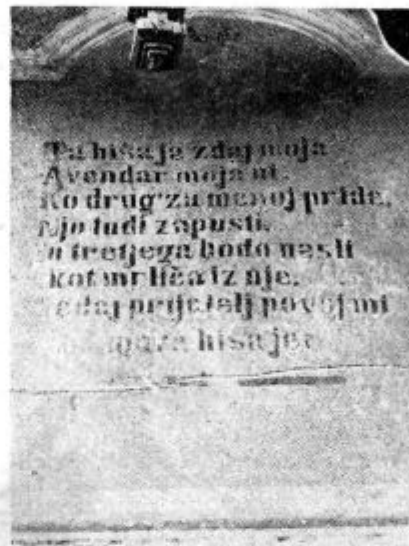 Ta hiša je zdaj moja
A vendar moja ni.
Ko drug za menoj pride,
Njo tudi zapusti.
In tretjega bodo nesli
kot mrliča iz nje.
Sedaj prijatelj povej mi
hiša je